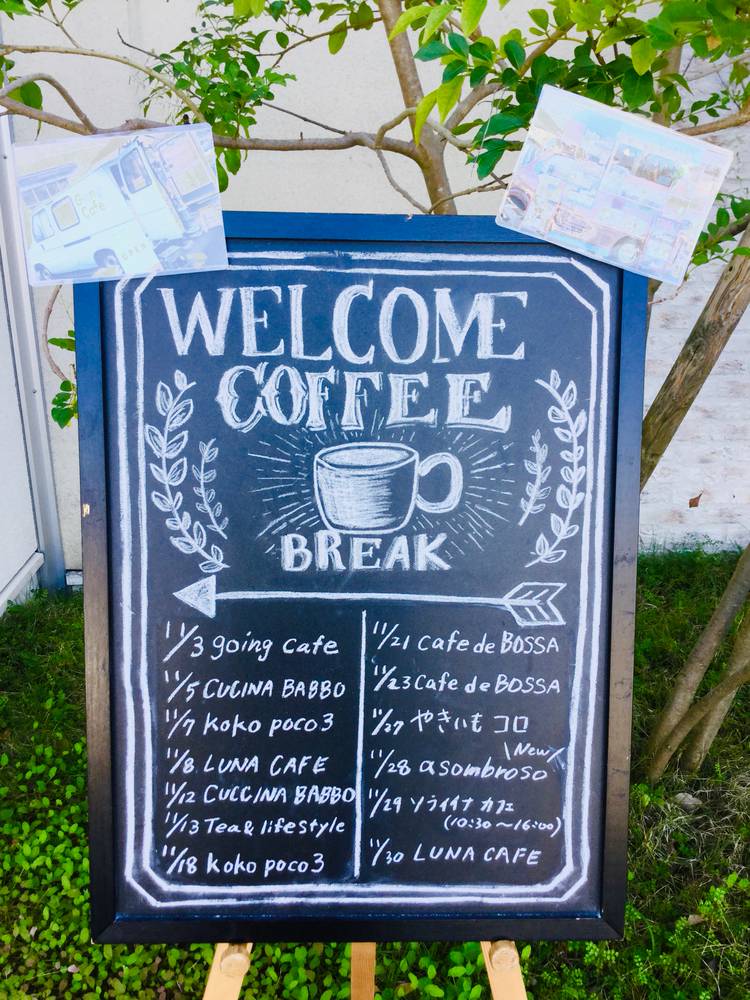 Cafe
OPEN
WELCOME
COFFEE
BREAK
11/3 going cafe
11/5 CUCINA BABBO
11/7 koko poco3
11/8 LUNA CAFE
11/12 CUCCINA BABBO
11/13 Tea & lifestyle
11/18 koko poco3
11/21 cafe de BOSSA
11/23 Cafe de BOSSA
11/27 やきいも コロ
New
11/28 asombroso
11/29 ソライイナ カフェ
(10:30〜16:00)
11/30 LUNA CAFE